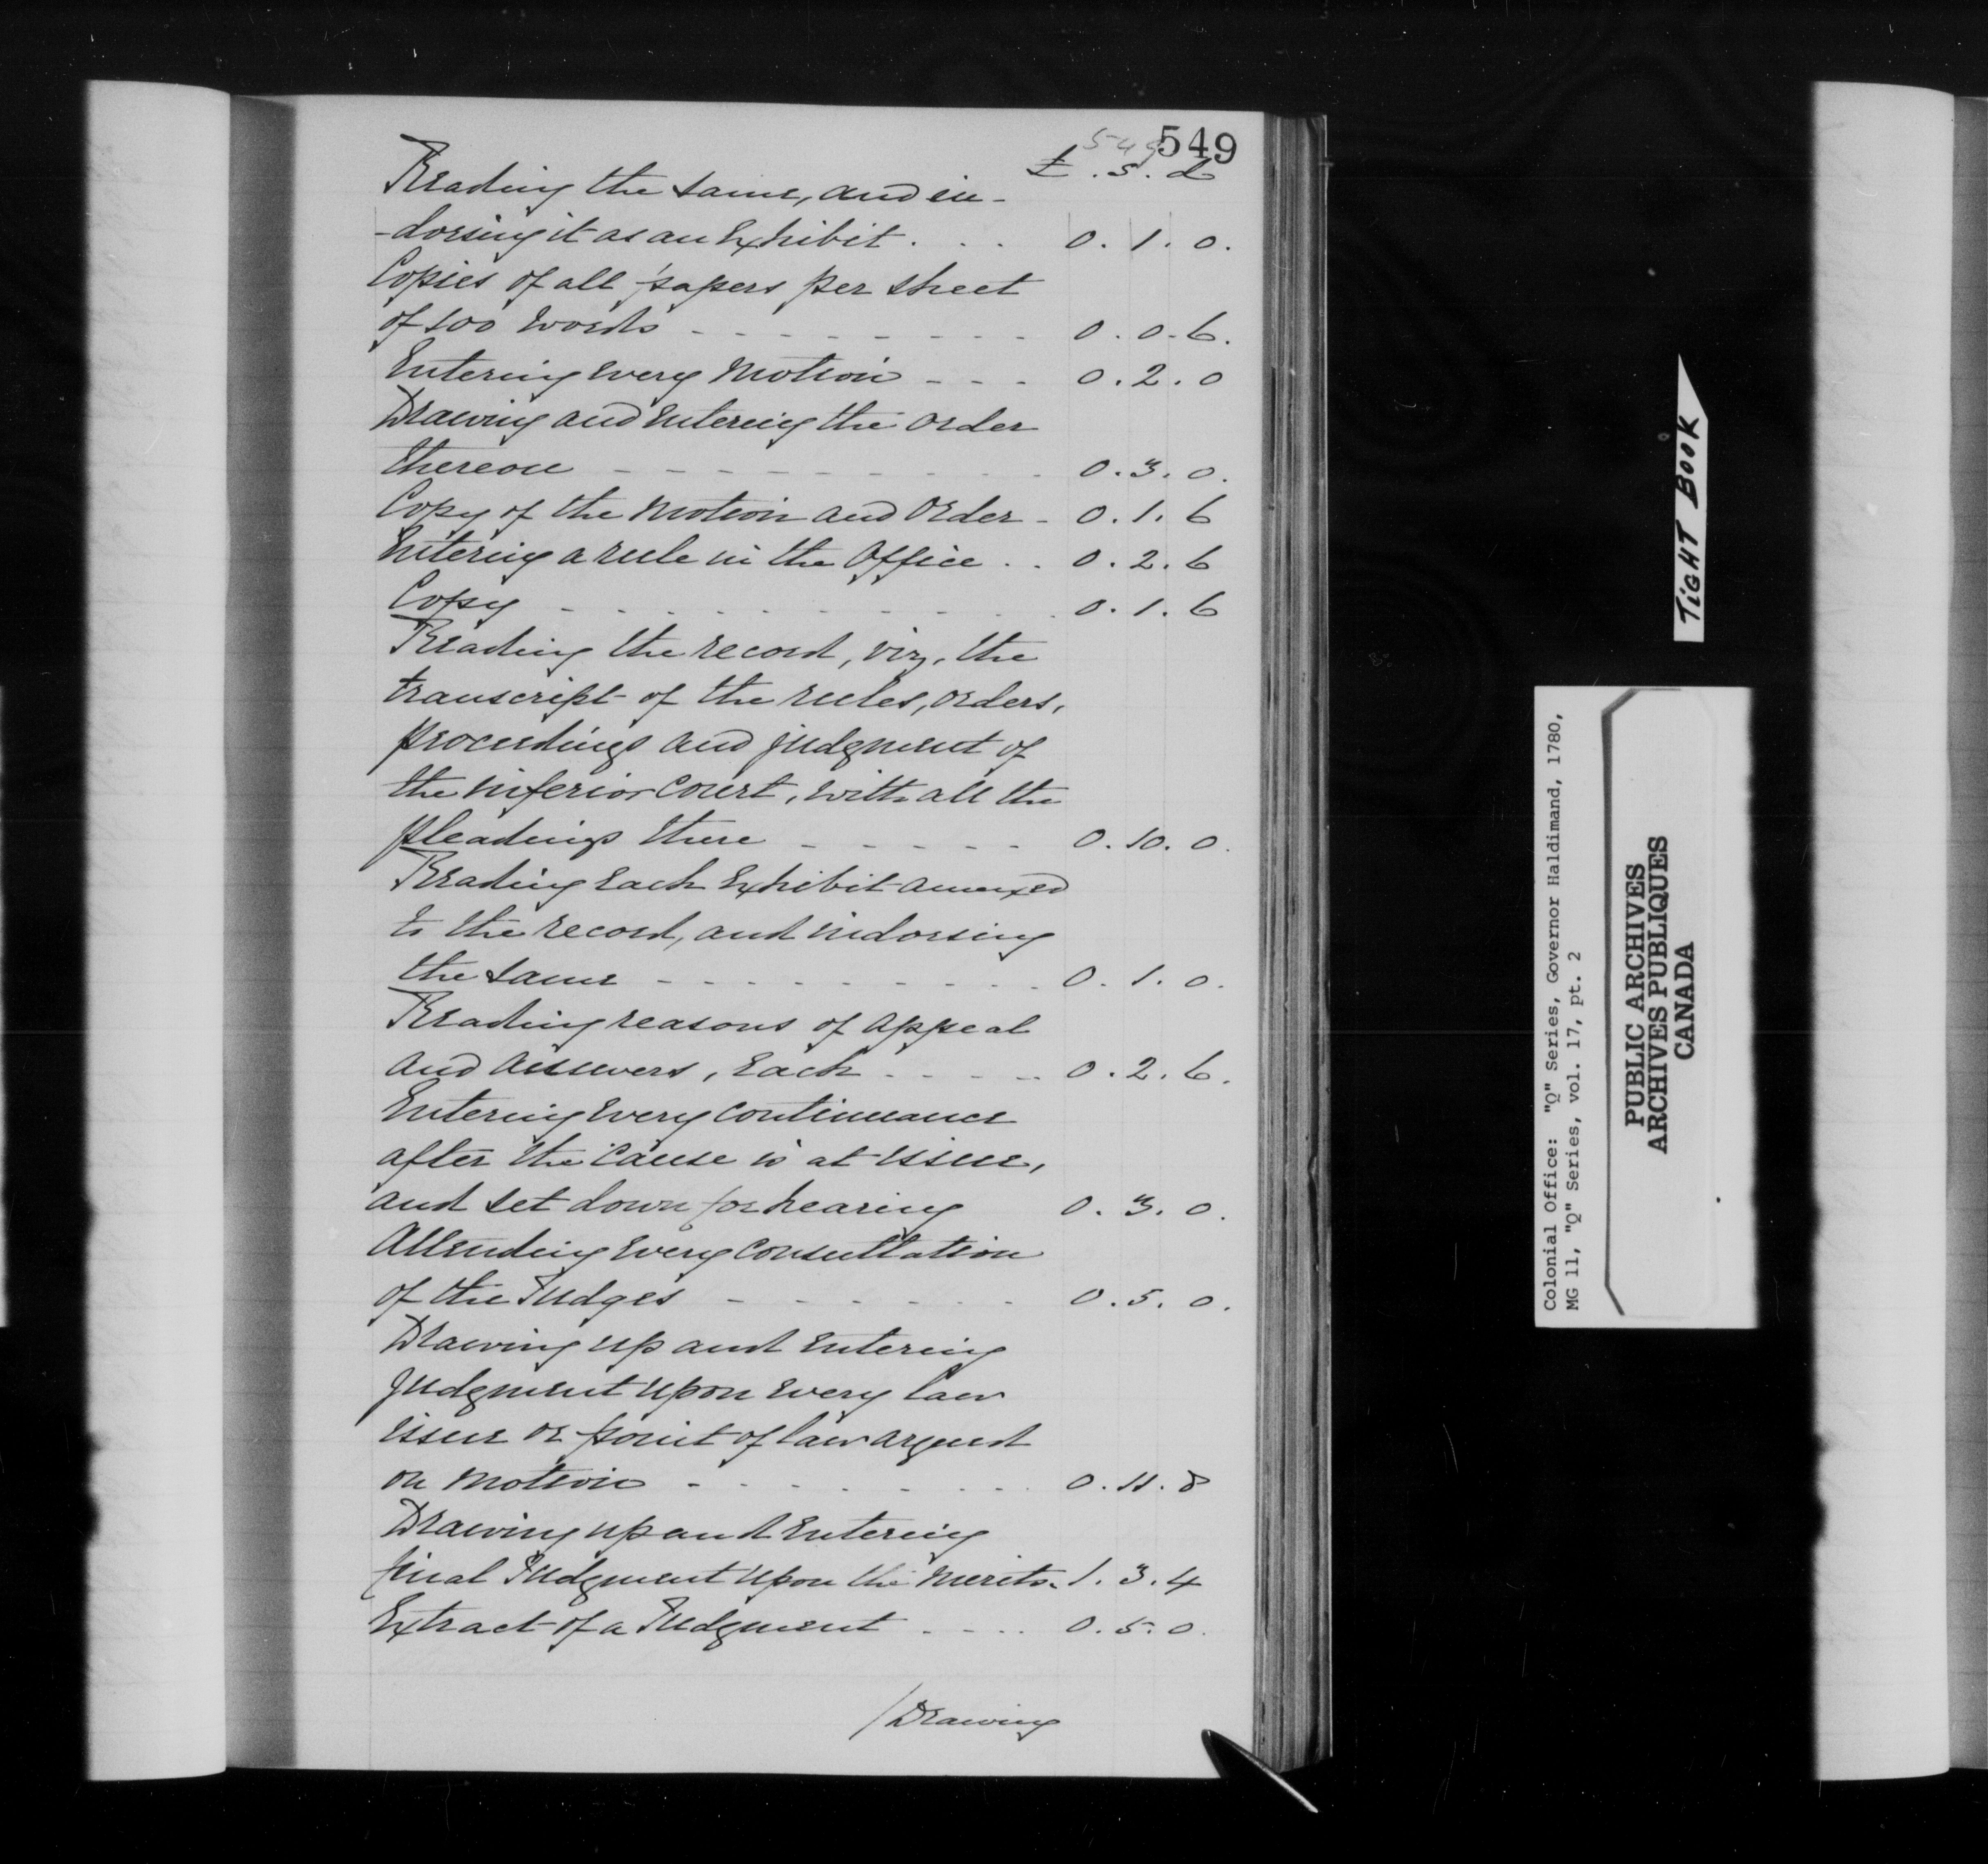 549
549
£ . s . d
Reading the same, and in-
-dorsing it as an Exhibit . . . 0 . 1 . 0 .
Copies of all papers per sheet
of 100 words - - - - - - - - - 0 . 0 . 6 .
Entering every Motion - - - 0 . 2 . 0
Drawing and entering the order
thereon - - - - - - - - - - 0 . 3 . 0 .
Copy of the Motion and Order - 0 . 1 . 6
Entering a rule in the Office . . 0 . 2 . 6
Copy - - - - - - - - - - 0 . 1 . 6
Reading the record, viz, the
transcript of the rules, orders,
proceedings and judgment of
the inferior Court, with all the
pleadings there - - - - - 0 . 10 . 0 .
Reading each Exhibit annexed
to the record, and indorsing
the same - - - - - - - - - 0 . 1 . 0 .
Reading reasons of appeal
and answers, each - - - - - 0 . 2 . 6 .
Entering every continuance
after the cause is at issue,
and set down for hearing 0 . 3 . 0 .
Attending every consultation
of the Judges - - - - - - 0 . 5 . 0 .
Drawing up and entering
judgment upon every law
issue or point of law argued
on motion - - - - - - - - 0 . 11 . 8
Drawing up and entering
final Judgment upon the merits . 1 . 3 . 4
Extract of a Judgment - - - . 0 . 5 . 0 .
/Drawing
TiGHT BOOK
Colonial Office: "Q" Series, Governor Haldimand, 1780,
MG 11, "Q" Series, vol. 17, pt. 2
PUBLIC ARCHIVES
ARCHIVES PUBLIQUES
CANADA